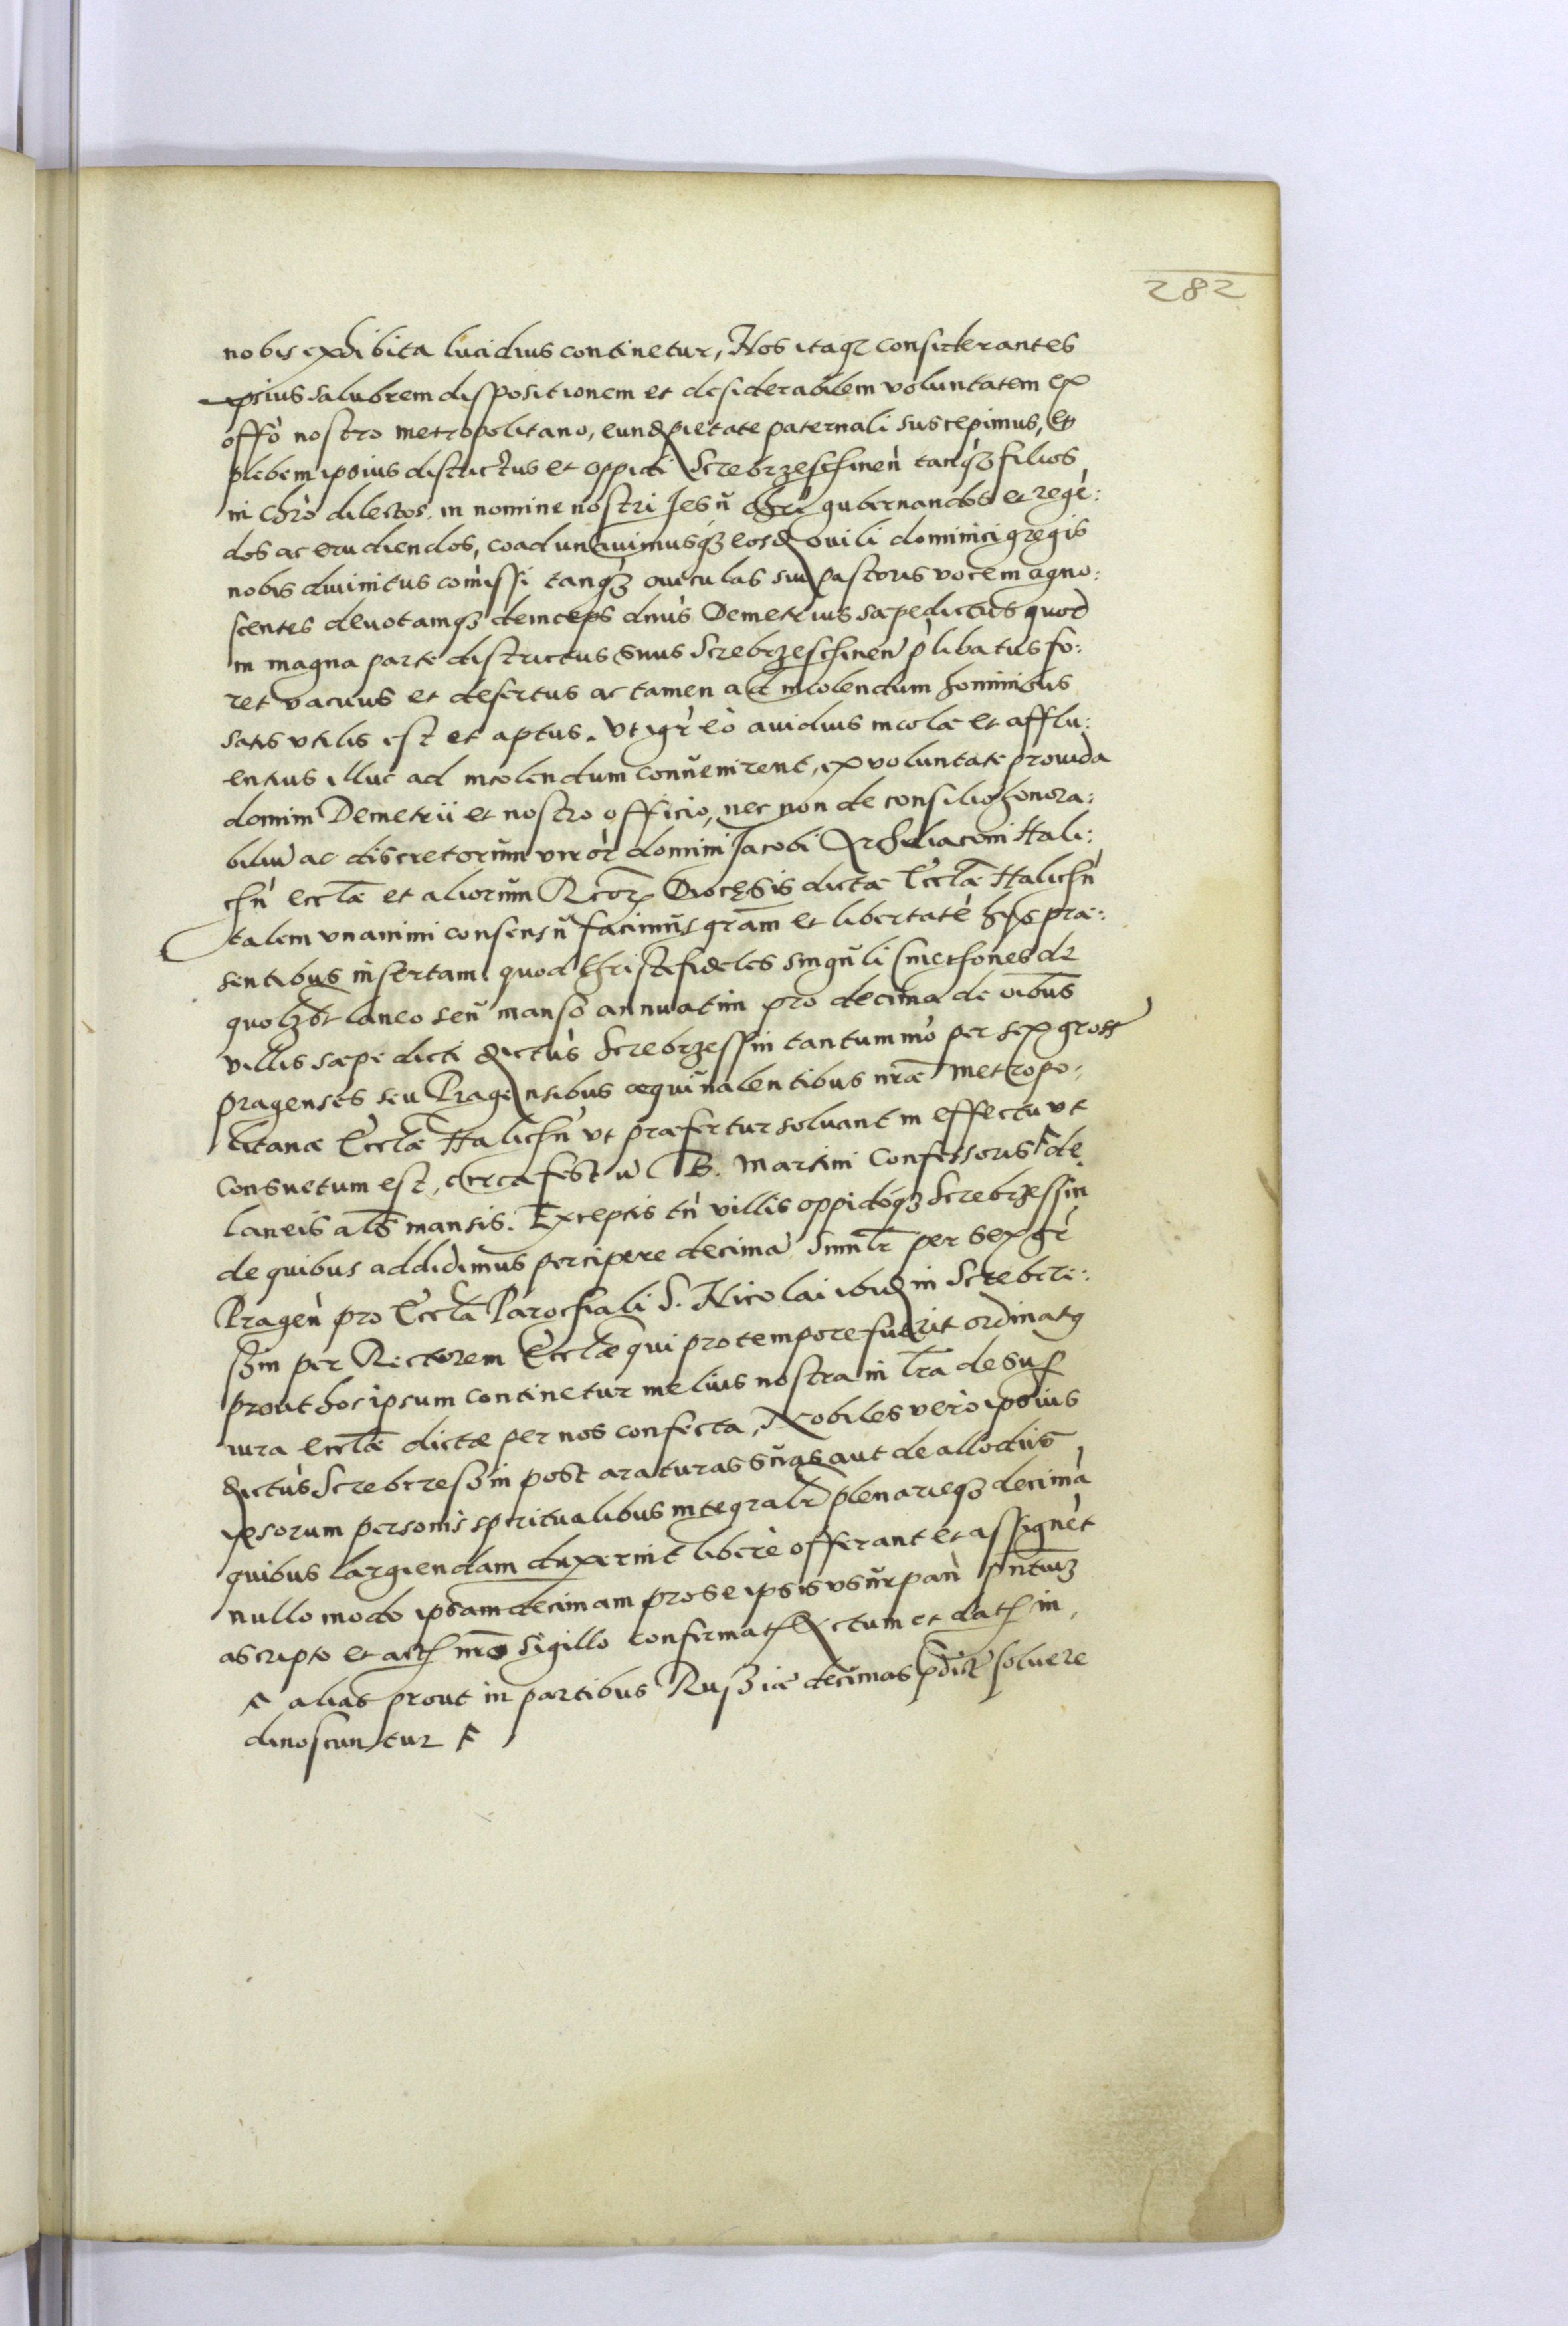 282
nobis exhibita lucidius continetur, Nos itaq3 considerantes
ipsius salubrem dispositionem et desiderabilem voluntatem ex
offõ nostro metropolitano, eund pietate paternali suscepimus, et
plebem ipsius districtus et oppidi Screbrzeschineñ tanq3 filios
in Chrõ dilectos, in nomine nostri Jesu Chrĩ gubernandos et regẽ:
dos ac erudiendos, coadunavimusq3 eosd ovili dominici gregis
nobis divinitus comissi tanq3 oviculas sui pastoris vocem agno:
scentes devotamq3 deinceps dnus Demetrius saepedictus quod
in magna parte districtus suus Screbrzeschineñ p̃libatus fo:
ret vacuus et desertus ac tamen ad incolendum hominibus
satis utilis est et aptus. Ut igr̃ eo avidius incolae et afflu:
entius illuc ad incolendum convenirent, ex voluntate provida
domini Demetrii et nostro officio, nec non de consilio honora:
biliũ ac discretorum viror̃ domini Jacobi Archidiaconi Hali:
chñ ecclæ et aliorum Rctor̃ Diocęsis dictæ Ecclæ Halichñ
talem unanimi consensu facimus gratiam et libertatẽ hys præ:
sentibus insertam, quod Christifideles singuli smethones de
quolzbt laneo seu manso annuatim pro decima de oĩbus
villis sæpe dicti dictus Screbrzessin tantummõ per sex gross
pragenses seu Pragensibus æquivalentibus nræ metropo:
litanæ Ecclæ Halichñ ut præfertur solvant in effectu ut
consuetum est, circa festũ B. Martini Confessoris ^ de
laneis als mansis. Exceptis tñ villis oppidoq3 Screbrzessin
de quibus addidimus percipere decimã similr̃ per sex gr̃
Prageñ pro Eccla Parochiali S. Nicolai ibid in Screbre:
szin per Rectorem Ecclæ qui pro tempore fuerit ordinatq
prout hoc ipsum continetur melius nostra in lra desup
iura ecclæ dictæ per nos confecta, Nobiles vero ipsius
dictus Screbreszin post araturas suas aut de allodiis
ipsorum personis spiritualibus integralr̃ plenarieq3 decimã
quibus largiendam duxerint libere offerant et assignẽt
nullo modo ipsam decimam pro se ipsis usurpañ pñtiu3
ascripto et nro sigillo confirmat Actum et dat in
^ alias prout in partibus Rusziæ decimas pdict solvere
dinoscuntur ^